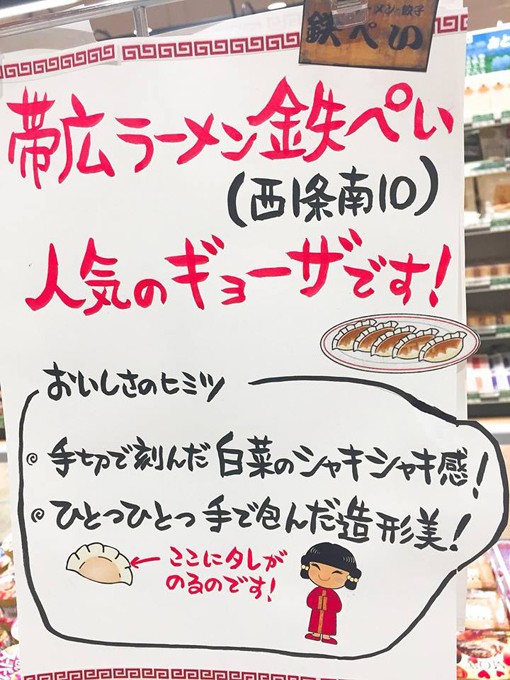 ラーメン・餃子
鉄ぺい
帯広ラーメン鉄ぺい
(西1条南10)
人気のギョーザです!
おいしさのヒミツ
手切で刻んだ白菜のシャキシャキ感!
ひとつひとつ手で包んだ造形美!
ここにタレが
のるのです!